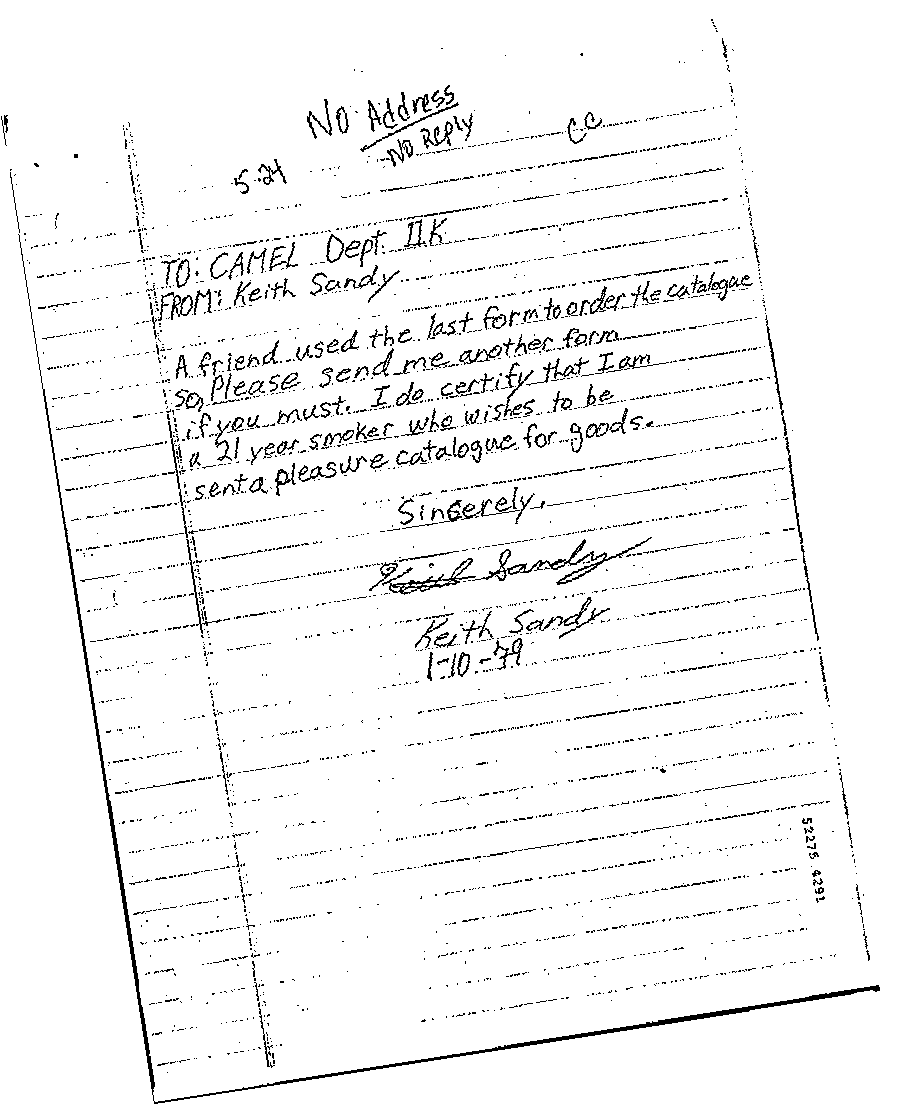 No Address
-No Reply
CC
5-24
TO: CAMEL Dept. II.K
FROM: Keith Sandy
A friend used the last form to order the catalogue
so, Please send me another form
if you must. I do certify that I am
a 21 year smoker who wishes to be
sent a pleasure catalogue for goods.
Sincerely,
Keith Sandy
Keith Sandy
1-10-79
52275 4291